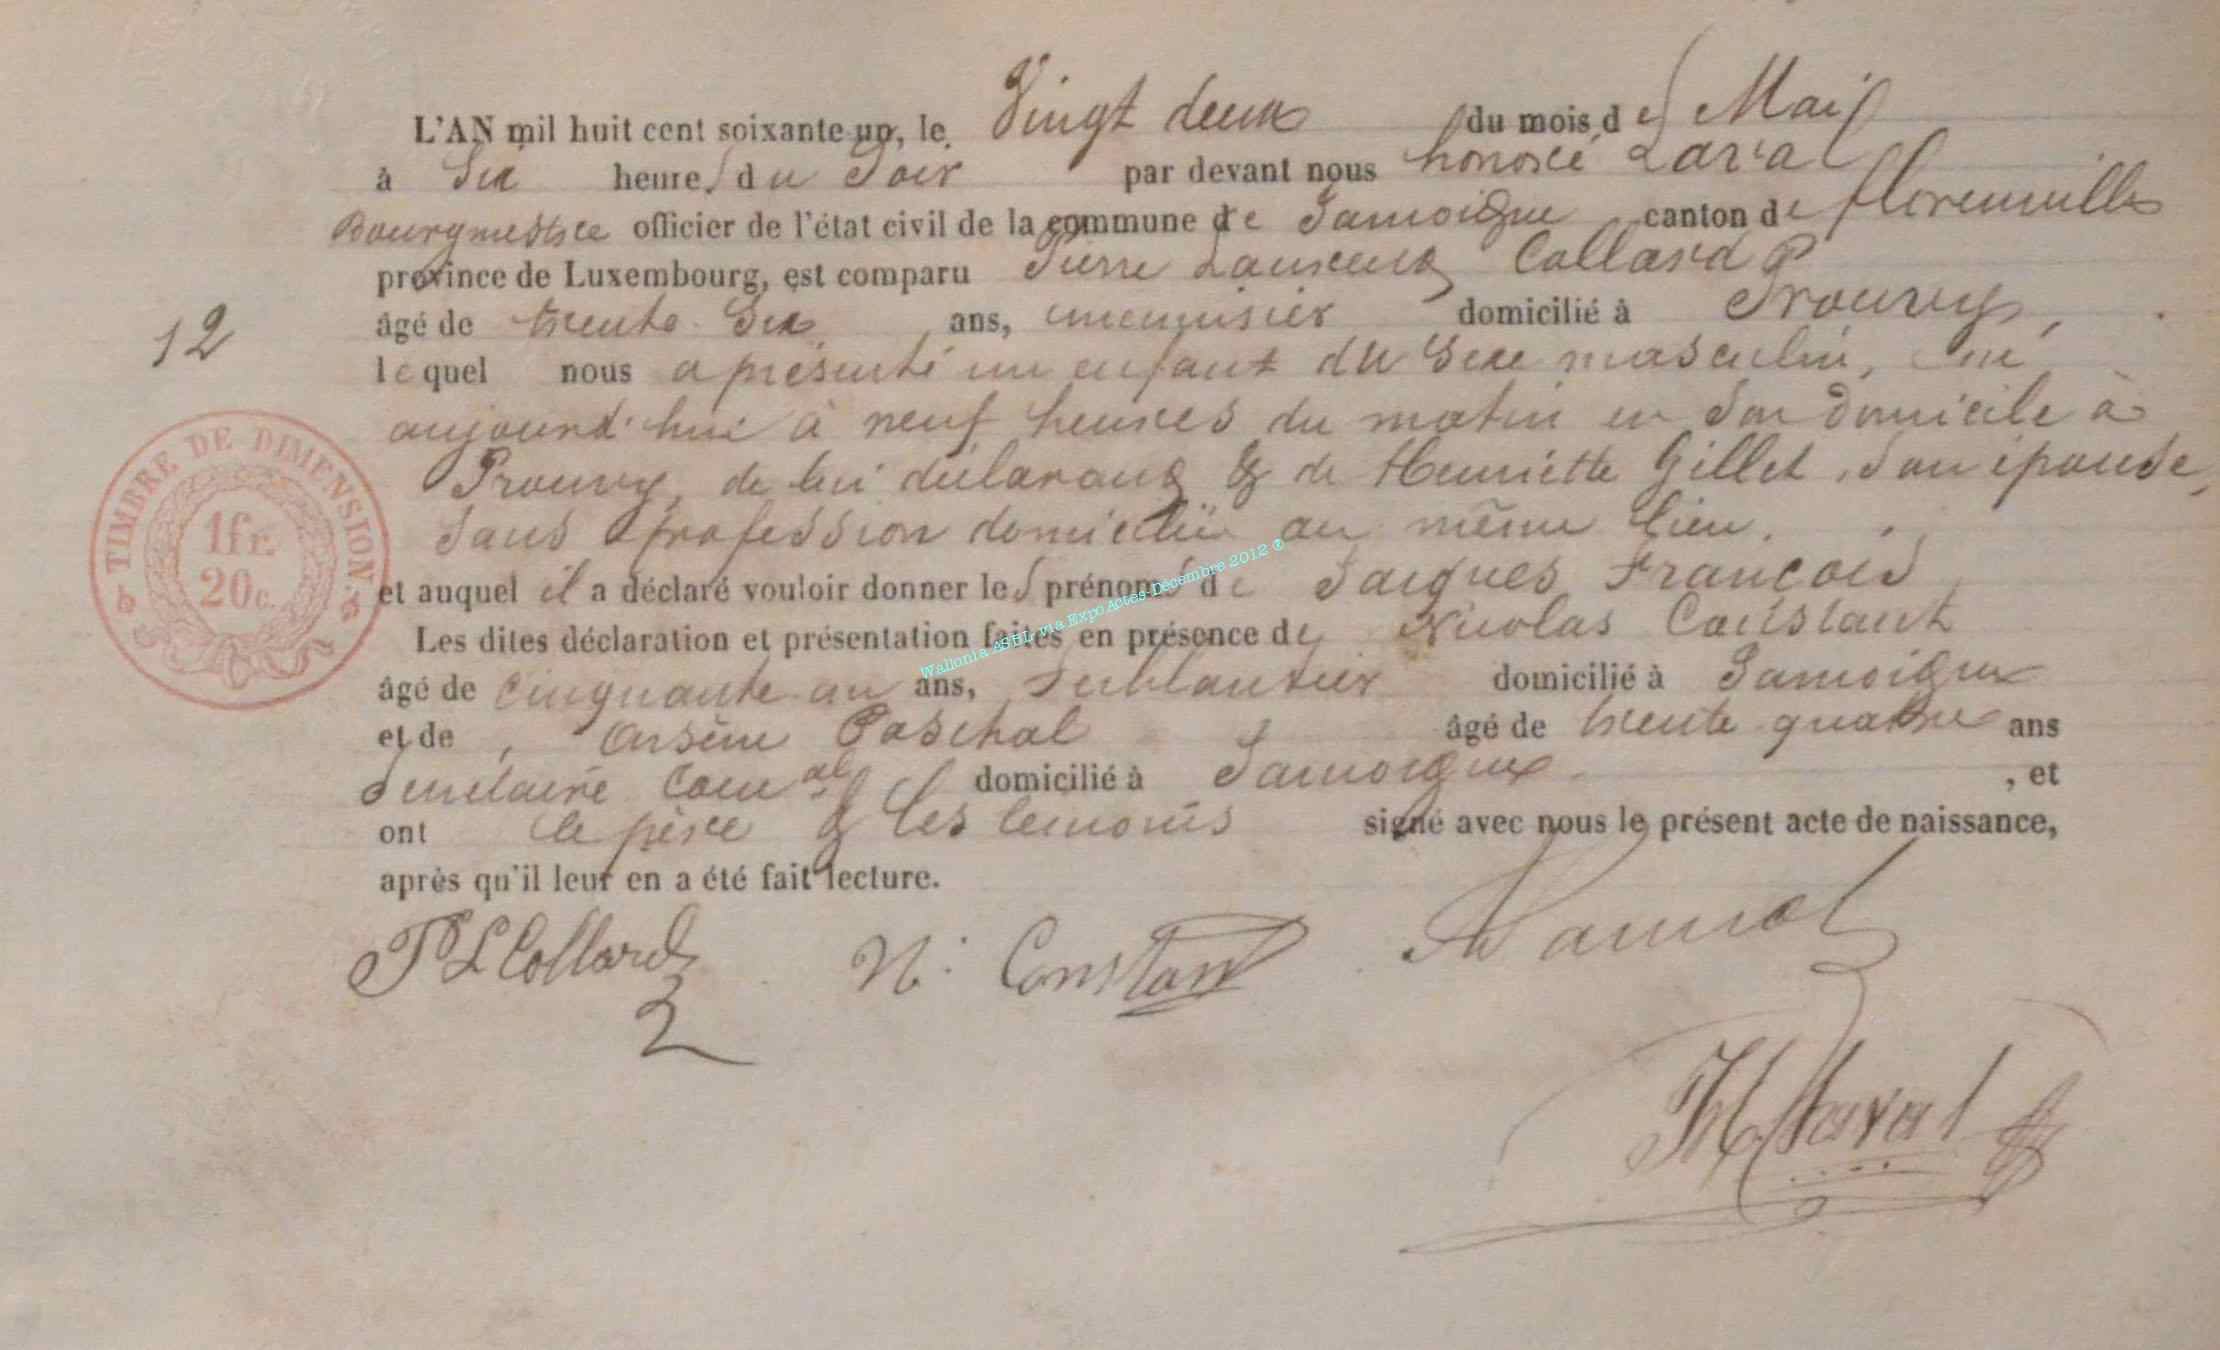 L'AN mil huit cent soixante un, le Vingt deux du mois de Mai
à Six heures du Soir par devant nous honoré Laval
Bourgmestre officier de l'état civil de la commune de Jamoigne canton de florenville
province de Luxembourg, est comparu Pierre Laurent Collard
âgé de trente Six ans, menuisier domicilié à Prouvy,
12
lequel nous a présenté un enfant du Sexe masculin, né
aujourd'hui à neuf heures du matin en Son domicile à
Prouvy, de lui déclarant & de Henriette Gillet, Son épouse,
Sans profession domiciliée au même lieu.
TIMBRE DE DIMENSION
1fr.
20c.
et auquel il a déclaré vouloir donner les prénoms de Jacques François
Les dites déclaration et présentation faites en présence de Nicolas Constant
âgé de Cinquante un ans, ferblantier domicilié à Jamoigne
et de Arsène Paschal âgé de trente quatre ans
Secrétaire Comal domicilié à Jamoigne , et
ont le père & les temoins signé avec nous le présent acte de naissance,
après qu'il leur en a été fait lecture.
P L Collard N. Constant
H Laval
Wallonia ASBL via Expo Actes-Décembre 2012 ®